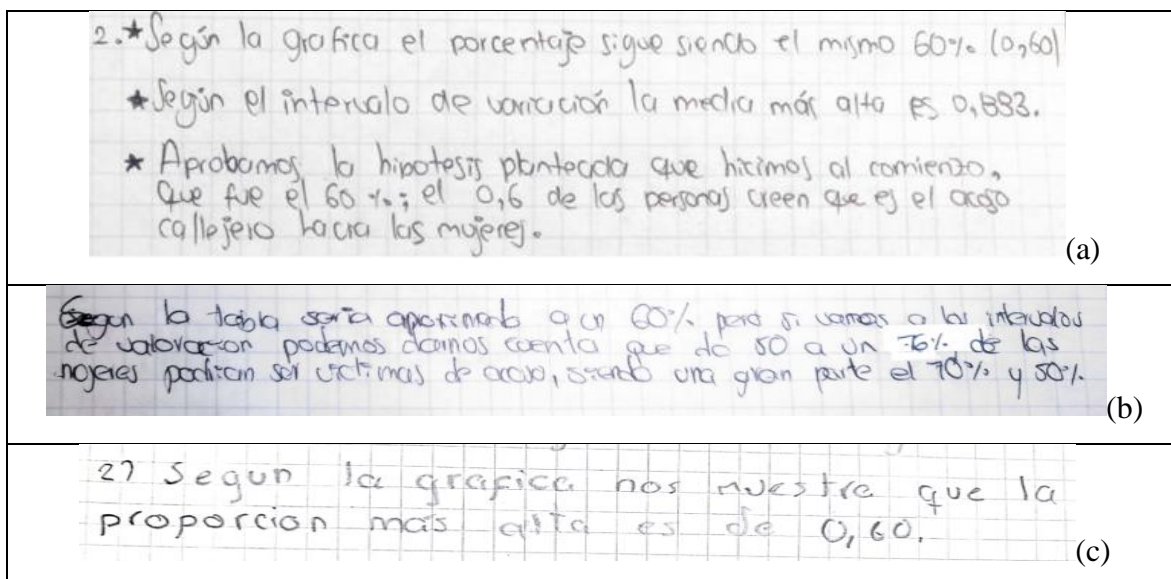 2.★ Según la grafica el porcentaje sigue siendo el mismo 60% (0,60)
★ Según el intervalo de variación la media más alta es 0,883.
★ Aprobamos la hipotesis planteada que hicimos al comienzo,
que fue el 60 %; el 0,6 de las personas creen que es el acoso
callejero hacia las mujeres.
(a)
Segun la tabla seria aproximado a un 60% pero si vamos a los intervalos
de valoracion podemos darnos cuenta que da 50 a un 76% de las
mojeres podrian ser victimas de acoso, siendo una gran parte el 70% y 50%.
(b)
2) Segun la grafica nos muestra que la
proporcion mas alta es de 0,60.
(c)